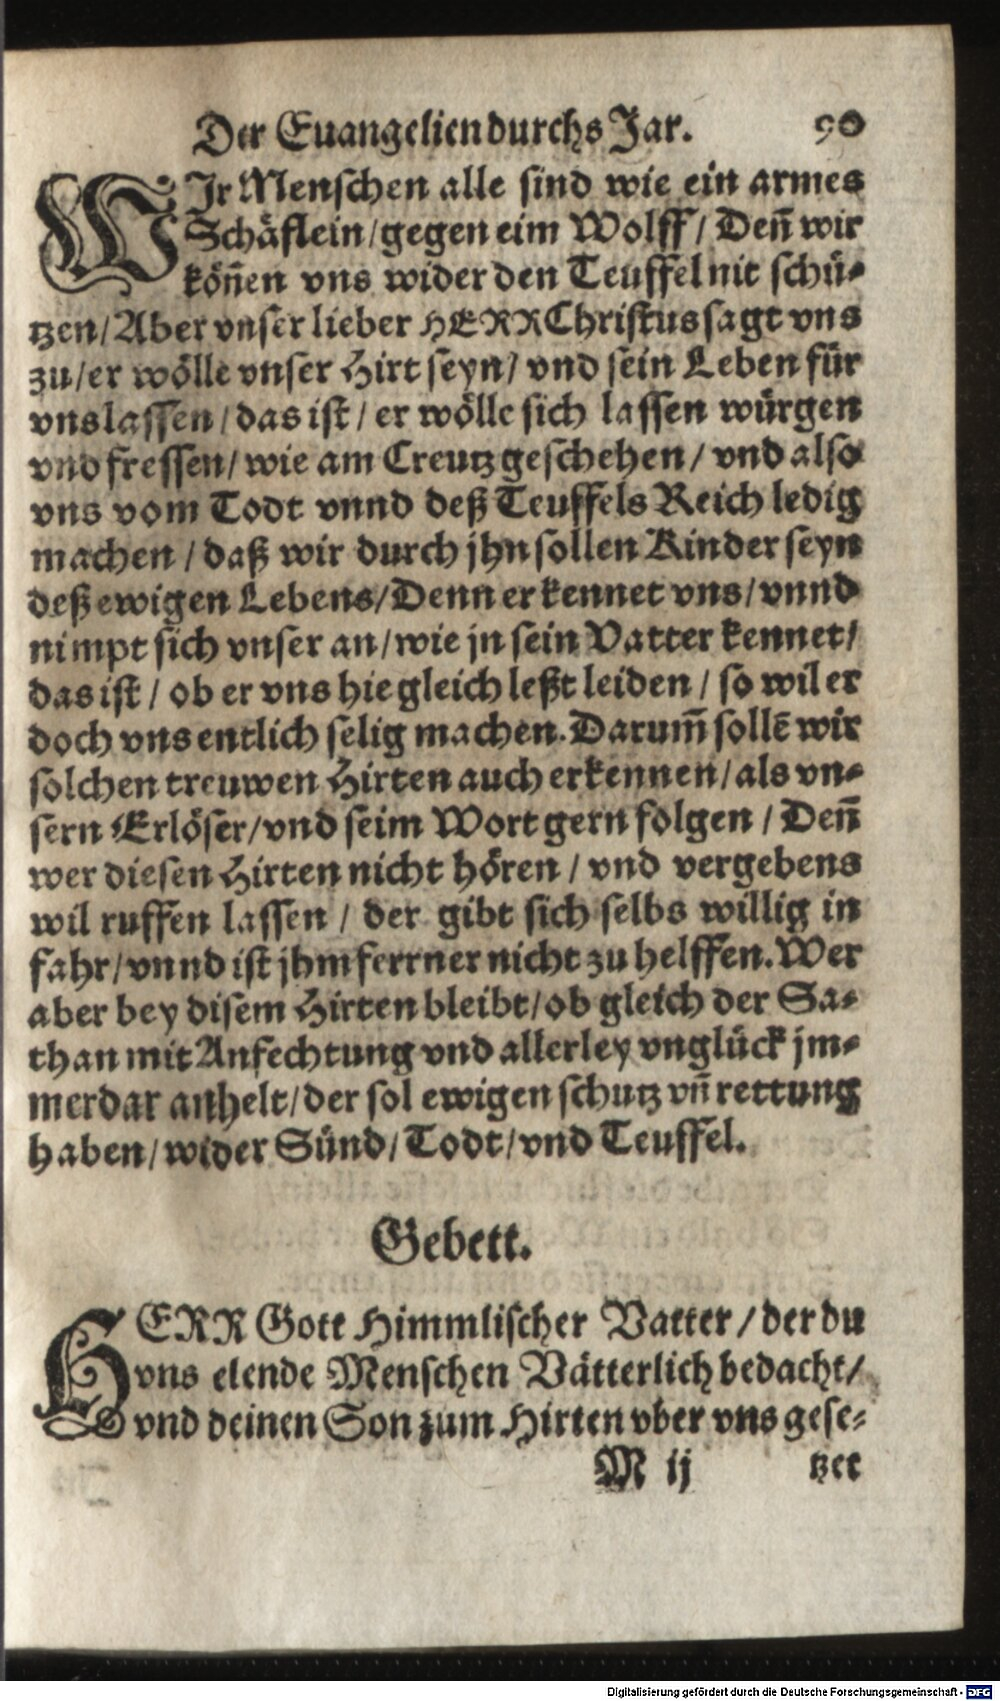 Der Euangelien durchs Jar. 90
WJr Menschen alle sind wie ein armes
Schäflein/gegen eim Wolff/ Den̄ wir
kön̄en vns wider den Teuffel nit schü-
tzen/Aber vnser lieber HERR Christus sagt vns
zu/er wölle vnser Hirt seyn/ vnd sein Leben für
vns lassen/das ist/ er wölle sich lassen würgen
vnd fressen/wie am Creutz geschehen/ vnd also
vns vom Todt vnnd deß Teuffels Reich ledig
machen/daß wir durch jhn sollen Kinder seyn
deß ewigen Lebens/Denn er kennet vns/vnnd
nimpt sich vnser an/wie jn sein Vatter kennet/
das ist/ ob er vns hie gleich leßt leiden/ so wil er
doch vns entlich selig machen. Darum̄ sollē wir
solchen treuwen Hirten auch erkennen/als vn-
sern Erlöser/vnd seim Wort gern folgen/ Den̄
wer diesen Hirten nicht hören/ vnd vergebens
wil ruffen lassen/ der gibt sich selbs willig in
fahr/vnnd ist jhm ferrner nicht zu helffen. Wer
aber bey disem Hirten bleibt/ob gleich der Sa-
than mit Anfechtung vnd allerley vnglück jm-
merdar anhelt/der sol ewigen schutz vn̄ rettung
haben/wider Sünd/Todt/vnd Teuffel.
Gebett.
HERR Gott Himmlischer Vatter/der du
vns elende Menschen Vätterlich bedacht/
vnd deinen Son zum Hirten vber vns gese-
M ij tzet
Digitalisierung gefördert durch die Deutsche Forschungsgemeinschaft - DFG